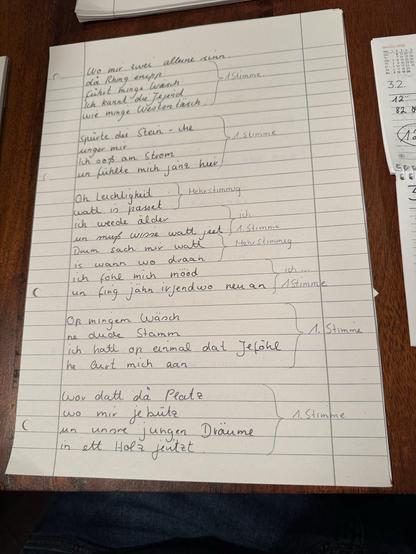 Wo mir zwei alleine sinn
då Rhing erupp
führt minge Wäsch
Ich kannt die Jejend
wie minge Westentäsch
1 Stimme
Spürte die Stein
unger mir
Ich soß am Strom
un fühlte mich janz hier
1. Stimme
Oh Leichtigkeit
watt is passet
Mehrstimmig
ich weede älder
un muß wisse watt jeet
ich
1. Stimme
Drum sach mir watt
is wann wo draan
Mehrstimmig
ich föhl mich mööd
un fing jähn irjendwo neu an
ich ...
1 Stimme
Op mingem Wäsch
ne dude Stamm
ich hatt op einmal dat Jeföhl
he lurt mich aan
1. Stimme
Wor datt då Platz
wo mir jebütz
un unsre jungen Dräume
in ett Holz jeritzt
1. Stimme
3.2.
12
82